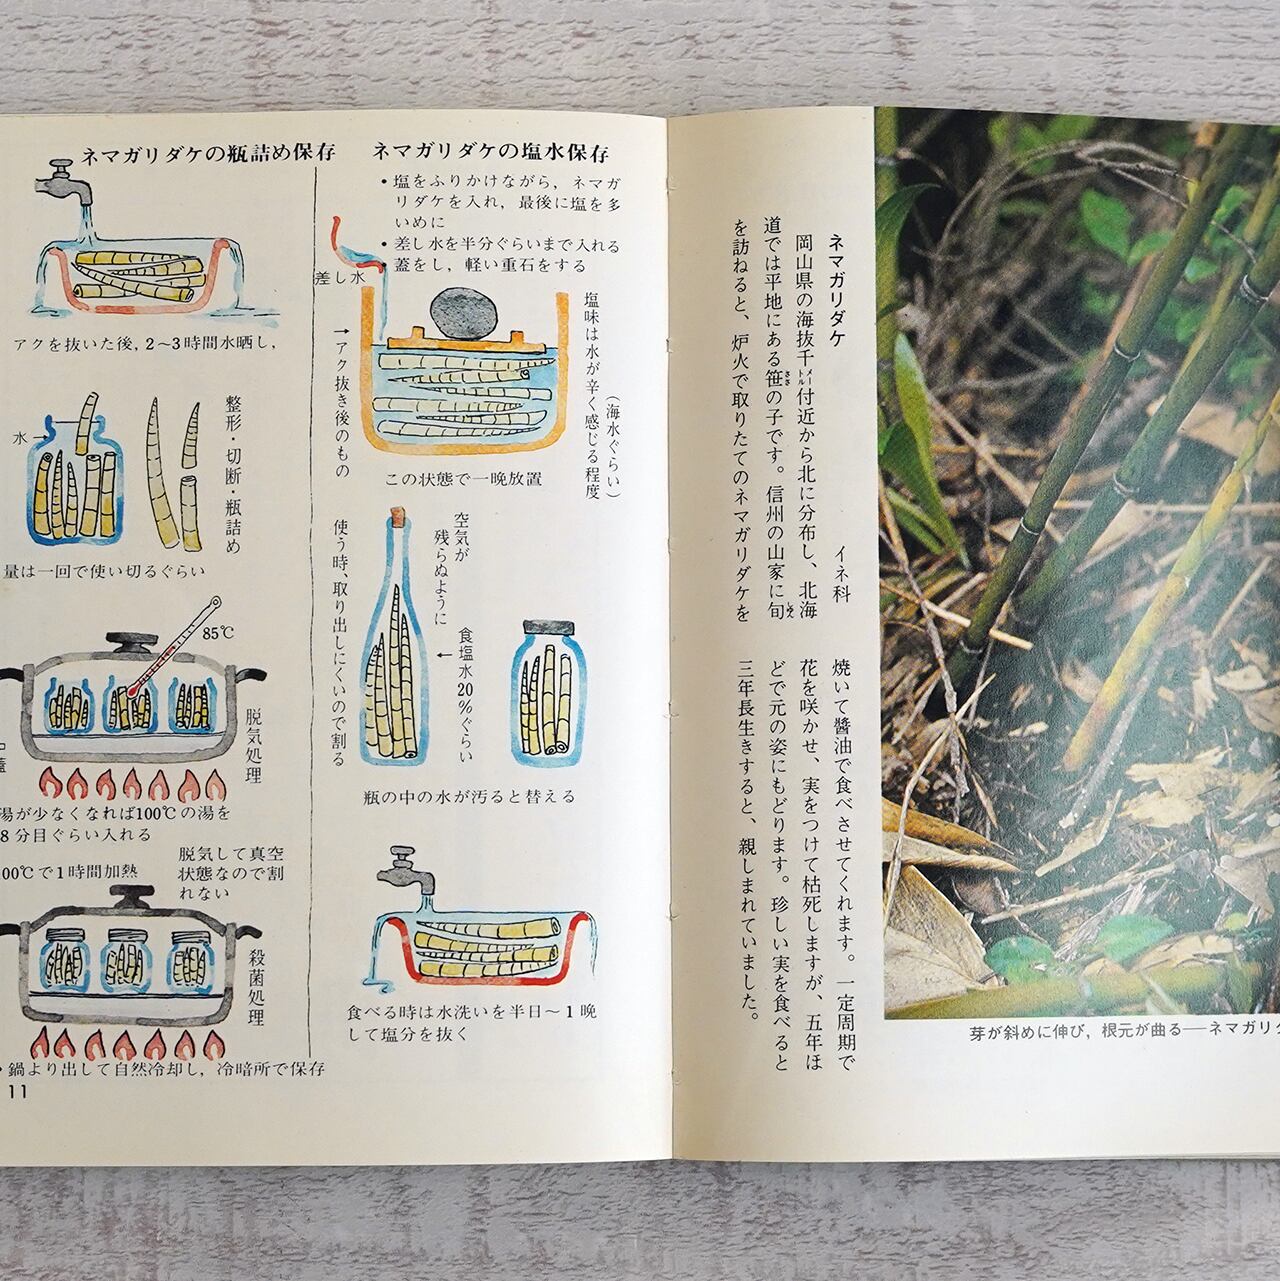 ネマガリダケ　イネ科
岡山県の海抜千メートル付近から北に分布し、北海
道では平地にある笹の子です。信州の山家に旬
を訪ねると、炉火で取りたてのネマガリダケを
焼いて醬油で食べさせてくれます。一定周期で
花を咲かせ、実をつけて枯死しますが、五年ほ
どで元の姿にもどります。珍しい実を食べると
三年長生きすると、親しまれていました。
芽が斜めに伸び，根元が曲る——ネマガリ
ネマガリダケの塩水保存
・塩をふりかけながら，ネマガ
リダケを入れ，最後に塩を多
いめに
・差し水を半分ぐらいまで入れる
・蓋をし，軽い重石をする
差し水
塩味は水が辛く感じる程度
（海水ぐらい）
→アク抜き後のもの
この状態で一晩放置
空気が
残らぬように
←食塩水20％ぐらい
使う時、取り出しにくいので割る
瓶の中の水が汚ると替える
食べる時は水洗いを半日〜1晩
して塩分を抜く
ネマガリダケの瓶詰め保存
アクを抜いた後，2〜3時間水晒し，
整形・切断・瓶詰め
水→
量は一回で使い切るぐらい
85℃
脱気処理
蓋
湯が少なくなれば100℃の湯を
8分目ぐらい入れる
00℃で1時間加熱
脱気して真空
状態なので割
れない
殺菌処理
・鍋より出して自然冷却し，冷暗所で保存
11